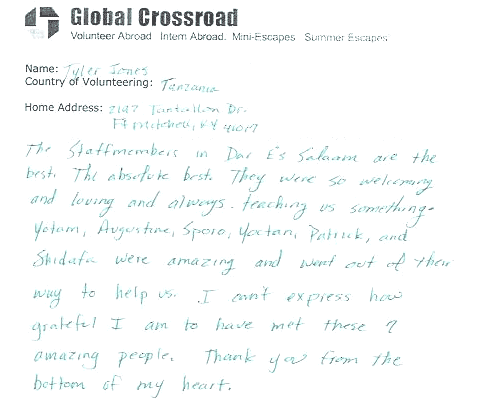 Global Crossroad
Volunteer Abroad Intern Abroad. Mini-Escapes Summer Escapes
Name: Tyler Jones
Country of Volunteering: Tanzania
Home Address: 2147 Tantallon Dr.
Ft Mitchell, KY 41017
The Staffmembers in Dar E's Salaam are the
best. The absolute best. They were so welcoming
and loving and always teaching us something.
Yotam, Augustine, Sporo, Yoctan, Patrick, and
Shidafa were amazing and went out of their
way to help us. I can't express how
grateful I am to have met these 7
amazing people. Thank you from the
bottom of my heart.